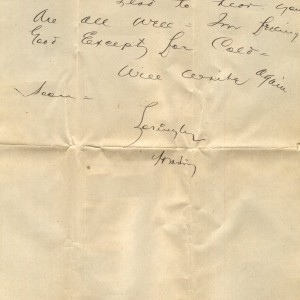 glad to hear you
Are all Well = Im feeling
Good Except for Cold =
Will Write again
Soon =
Lovingly